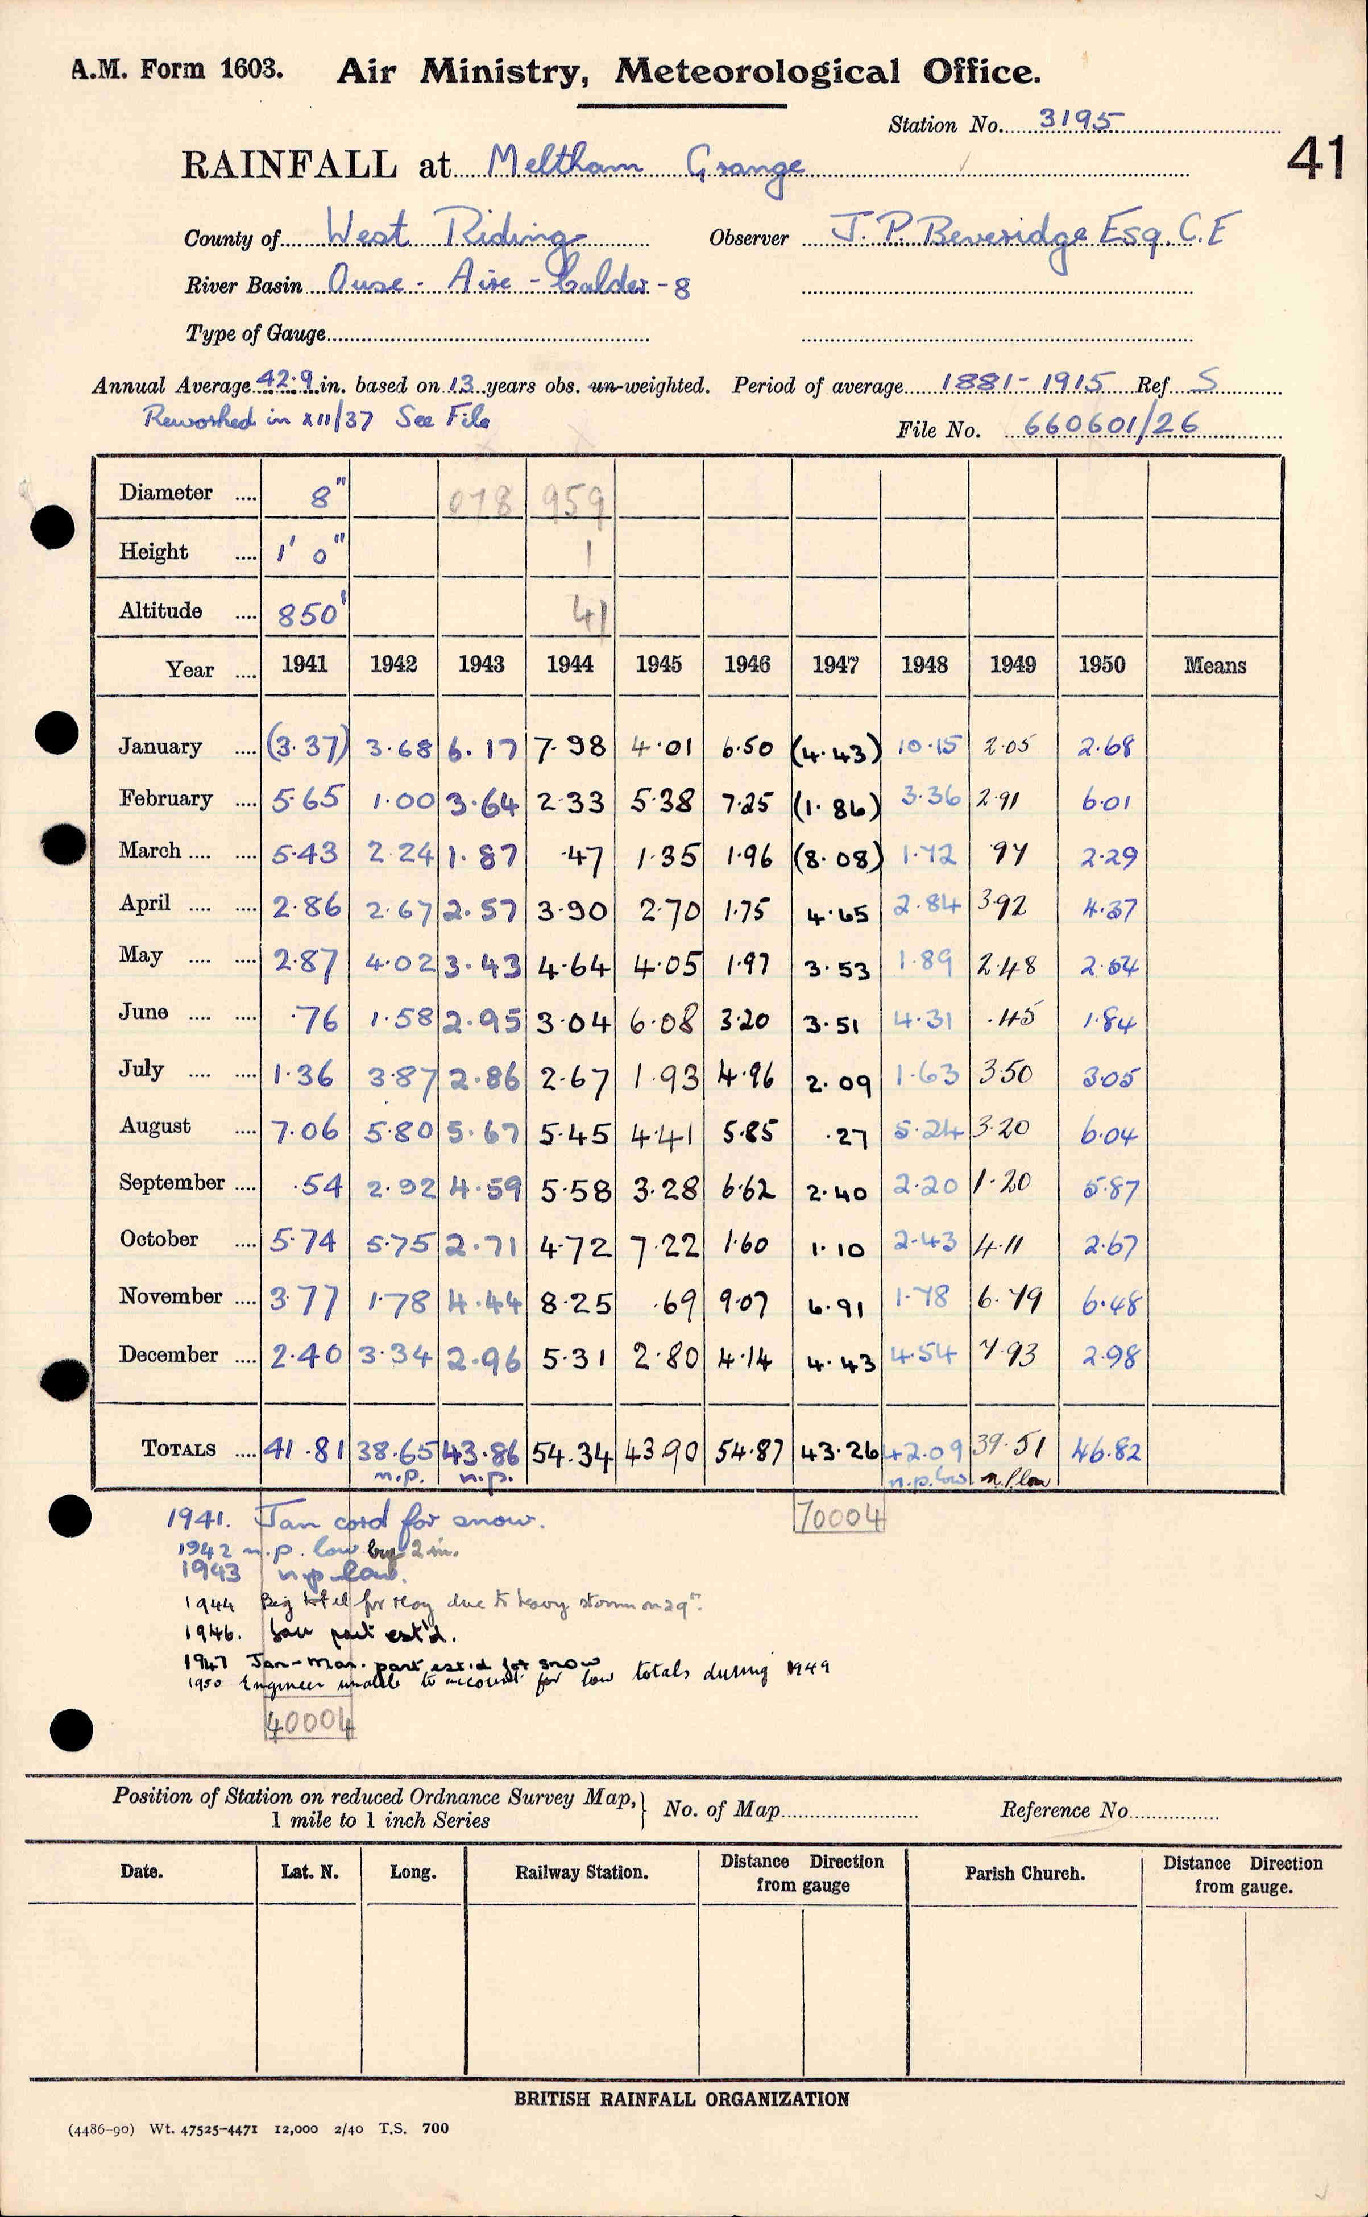 A.M. Form 1603. Air Ministry, Meteorological Office.
Station No. 3195
41
RAINFALL at Meltham Grange
County of West Riding Observer J.P. Beveridge Esq. C.E
River Basin Ouse - Aire - Calder - 8
Type of Gauge
Annual Average 42.9 in. based on 13 years obs. un-weighted. Period of average 1881-1915 Ref S
Reworked in XII/37 See File
File No. 660601/26
Diameter .... 8" 078 959
Height .... 1' 0" 1
Altitude .... 850' 41
Year .... 1941 1942 1943 1944 1945 1946 1947 1948 1949 1950 Means
January .... (3.37) 3.68 6.17 7.98 4.01 6.50 (4.43) 10.15 2.05 2.68
February .... 5.65 1.00 3.64 2.33 5.38 7.25 (1.86) 3.36 2.91 6.01
March .... .... 5.43 2.24 1.87 .47 1.35 1.96 (8.08) 1.72 .97 2.29
April .... .... 2.86 2.67 2.57 3.90 2.70 1.75 4.65 2.84 3.92 4.37
May .... .... 2.87 4.02 3.43 4.64 4.05 1.97 3.53 1.89 2.48 2.54
June .... .... .76 1.58 2.95 3.04 6.08 3.20 3.51 4.31 .45 1.84
July .... .... 1.36 3.87 2.86 2.67 1.93 4.96 2.09 1.63 3.50 3.05
August .... 7.06 5.80 5.67 5.45 4.41 5.85 .27 5.24 3.20 6.04
September .... .54 2.92 4.59 5.58 3.28 6.62 2.40 2.20 1.20 5.87
October .... 5.74 5.75 2.71 4.72 7.22 1.60 1.10 2.43 4.11 2.67
November .... 3.77 1.78 4.44 8.25 .69 9.07 6.91 1.78 6.79 6.48
December .... 2.40 3.34 2.96 5.31 2.80 4.14 4.43 4.54 7.93 2.98
TOTALS .... 41.81 38.65 43.86 54.34 43.90 54.87 43.26 42.09 39.51 46.82
n.p. n.p. n.p. low n.p. low
70004
1941. Jan cord for snow.
1942 n.p. low by 2 in.
1943 n.p low.
1944 Big total for May due to heavy storm on 29th.
1946. Jan part est'd.
1947 Jan-Mar. part est.d for snow
1950 Engineer unable to account for low totals during 1949
40004
Position of Station on reduced Ordnance Survey Map, } No. of Map Reference No
1 mile to 1 inch Series
Date. Lat. N. Long. Railway Station. Distance Direction from gauge Parish Church. Distance Direction from gauge.
BRITISH RAINFALL ORGANIZATION
(4486-90) Wt. 47525-4471 12,000 2/40 T.S. 700